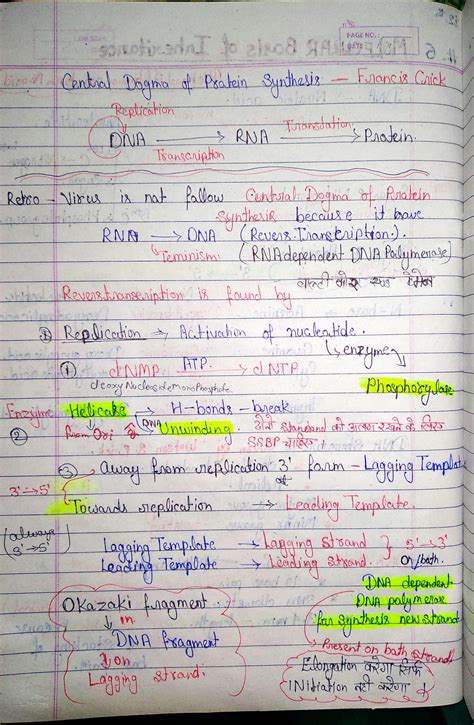 PAGE NO.:
DATE:
Central Dogma of Protein Synthesis — Francis Crick
Replication
DNA → RNA Translation → Protein.
Transcription
Retro - Virus is not follow Central Dogma of Protein
Synthesis because it have
RNA → DNA (Revers. Transcription.)
Teminism (RNA dependent DNA Polymerase)
Revers transcription is found by
① Replication → Activation of nucleotide.
↳ enzyme
① dNMP ATP → dNTP
Phosphorylase
deoxy Nucleoside Mono Phosphate
Enzyme Helicase → H-bonds - break
② from Ori DNA Unwinding. दोनों standard को अलग रखने के लिए
SSBP चाहिए
③ Away from replication 3' form - Lagging Template
3' → 5'
Towards replication → Leading Template.
(always
3' → 5') Lagging Template → Lagging strand } 5' → 3'
Leading Template → Leading strand. on both.
DNA dependent
Okazaki fragment DNA polymerase
↓ in for synthesis new strand
DNA fragment → Present on both strand
↓ on Elongation करेगा सिर्फ
Lagging strand. INitiation नहीं करेगा